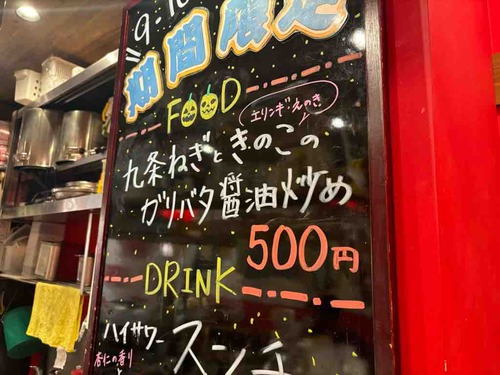 9・10
期間限定
FOOD
エリンギ・えのき
九条ねぎときのこの
ガリバタ醤油炒め
500円
DRINK
ハイサワー
杏仁の香り
スンチ